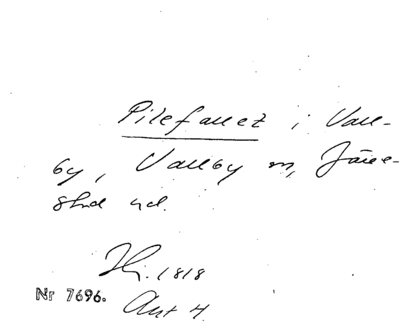 Pilefallet i Vall-
by, Vallby sn, Järre-
stad hd.
Hi. 1818
Akt 4
Nr 7696.